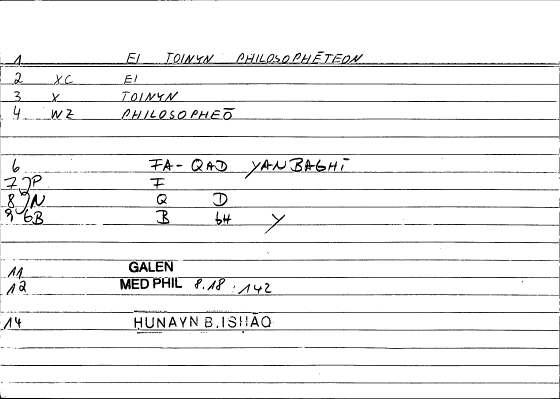 1 EI TOINYN PHILOSOPHĒTEON
2 XC EI
3 X TOINYN
4 WZ PHILOSOPHEŌ
6 FA- QAD YANBAGHĪ
7 JP F
8 JN Q D
9 6B B GH Y
11 GALEN
12 MED PHIL 8.18 : 142
14 HUNAYN B. ISHĀQ